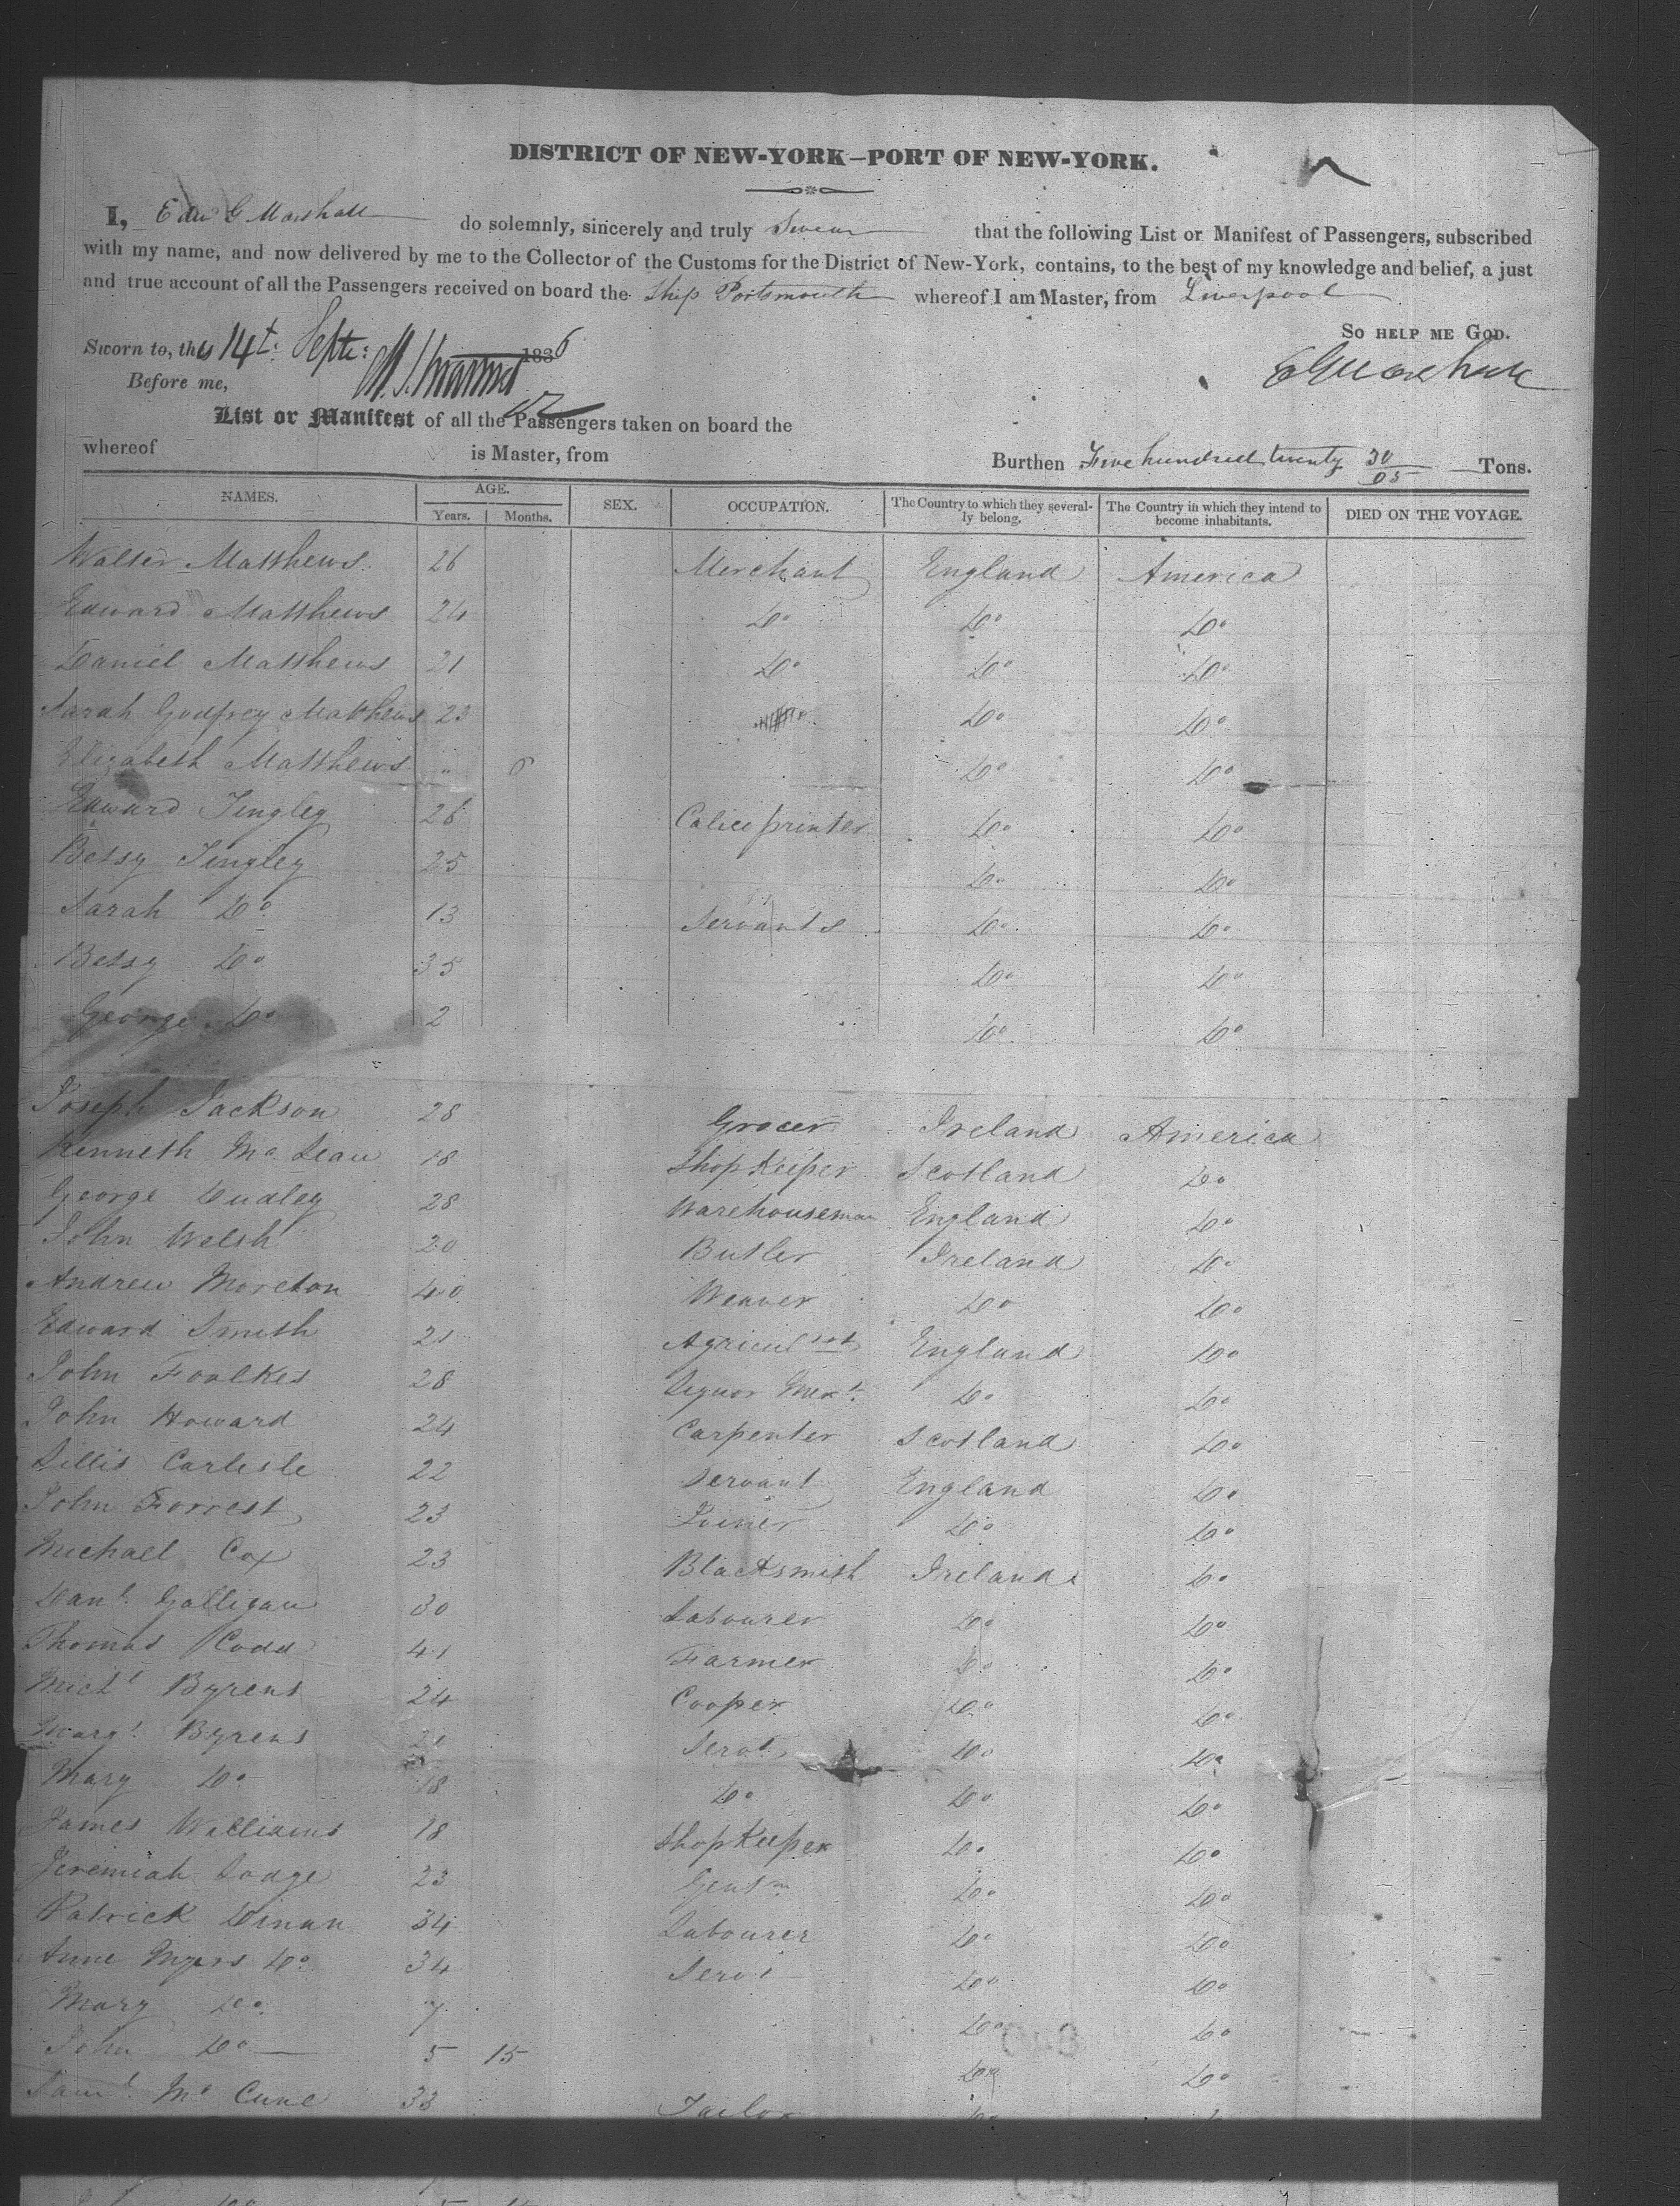 DISTRICT OF NEW-YORK—PORT OF NEW-YORK.
I, Edw G Marshall do solemnly, sincerely and truly Swear that the following List or Manifest of Passengers, subscribed
with my name, and now delivered by me to the Collector of the Customs for the District of New-York, contains, to the best of my knowledge and belief, a just
and true account of all the Passengers received on board the Ship Portsmouth whereof I am Master, from Liverpool
So HELP ME GOD.
Sworn to, this 14t. Septr: 1836
EGMarshall
Before me,
List or Manifest of all the Passengers taken on board the
whereof is Master, from Burthen Five hundred twenty 30/95 Tons.
NAMES. AGE. Years. Months. SEX. OCCUPATION. The Country to which they severally belong. The Country in which they intend to become inhabitants. DIED ON THE VOYAGE.
Walter Matthews 26 Merchant England America
Edward Matthews 24 Do Do Do
Daniel Matthews 21 Do Do Do
Sarah Godfrey Matthews 23 Do Do
Elizabeth Matthews " 6 Do Do
Edward Tingley 26 Calico printer Do Do
Betsy Tingley 25 Do Do
Sarah Do 13 Servants Do Do
Betsy Do 35 Do Do
George Do 2 Do Do
Joseph Jackson 28 Grocer Ireland America
Kenneth Mc Lean 18 Shop Keeper Scotland Do
George Dudley 28 Warehouseman England Do
John Welsh 20 Butler Ireland Do
Andrew Moreton 40 Weaver Do Do
Edward Smith 21 Agricul England Do
John Foulkes 28 Liquor Mert. Do Do
John Howard 24 Carpenter Scotland Do
Lillis Carlisle 22 Servant England Do
John Forrest 23 Joiner Do Do
Michael Cox 23 Blacksmith Ireland Do
Danl. Galligan 30 Labourer Do Do
Thomas Codd 41 Farmer Do Do
Michl Byrens 24 Cooper Do Do
Margt. Byrens Servt. Do Do
Mary Do 18 Do Do Do
James Williams 18 Shop Keeper Do Do
Jeremiah Lodge 23 Gentm Do Do
Patrick Dinan 34 Labourer Do Do
Anne Myers Do 34 Servt Do Do
Mary Do 7 Do Do
John Do 5 15 Do Do
Saml. Mc Cune 33 Tailor Do